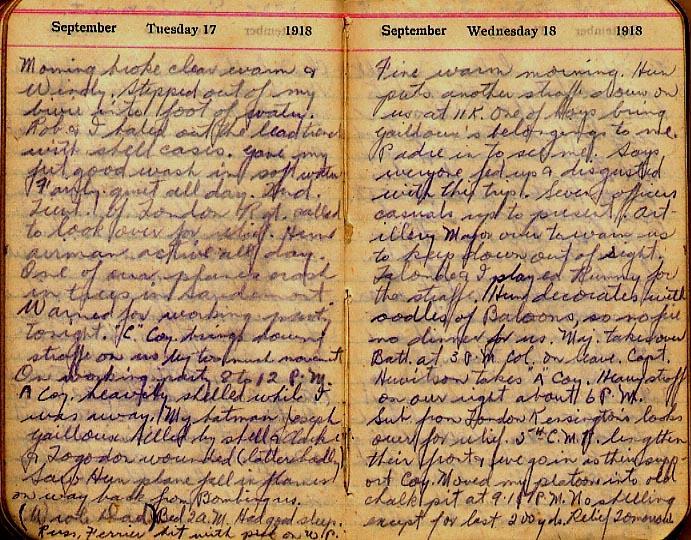 September Tuesday 17 1918
Morning broke clear warm &
Windy. Stepped out of my
bivie into 1 foot of water.
Rob & I baled out the lead trench
with shell cases. Gave my
feet good wash in soft water
Fairly quiet all day. 2nd.
Lieut. of London Rgt. called
to look over for relief. Huns
airman active all day.
One of our planes crash
in trees in Saudemont
Warned for working party
tonight. "C" Coy. brings down
straffe on us by too much movement
On working party 8 to 12 P.M.
A Coy. heavily shelled while I
was away. My batman Joseph
Gailloux killed by shell &
& Logodon wounded (latter badly)
Saw Hun plane fall in flames
on way back from Bombing us.
(Wrote Dad) Bed 2 A.M. Had good sleep.
Russ, Ferrier hit with pick on W.P.
September Wednesday 18 1918
Fine warm morning. Hun
puts another straffe down on
us at 11 K. One of boys bring
Gailloux's belongings to me.
Padre in to see me. Says
everyone fed up & disgusted
with this trip. Seven officer
casuals up to present. Art-
illery Major over to warn us
to keep down out of sight.
& I played Rummy for
the straffe. Hun decorates with
oodles of Baloons, so no fire
no dinner for us. Maj. takes over
Batt. at 3 P.M. Col. on leave. Capt.
Hewitson takes "A" Coy. Heavy straff
on our right about 6 P.M.
Sub from London Kensingtons looks
over for relief. 5th C.M.R. lengthen
their front & we go in as their supp-
ort Coy. Moved my platoon into old
chalk pit at 9.15 P.M. No shelling
except for last 200 yds. Relief tomorrow